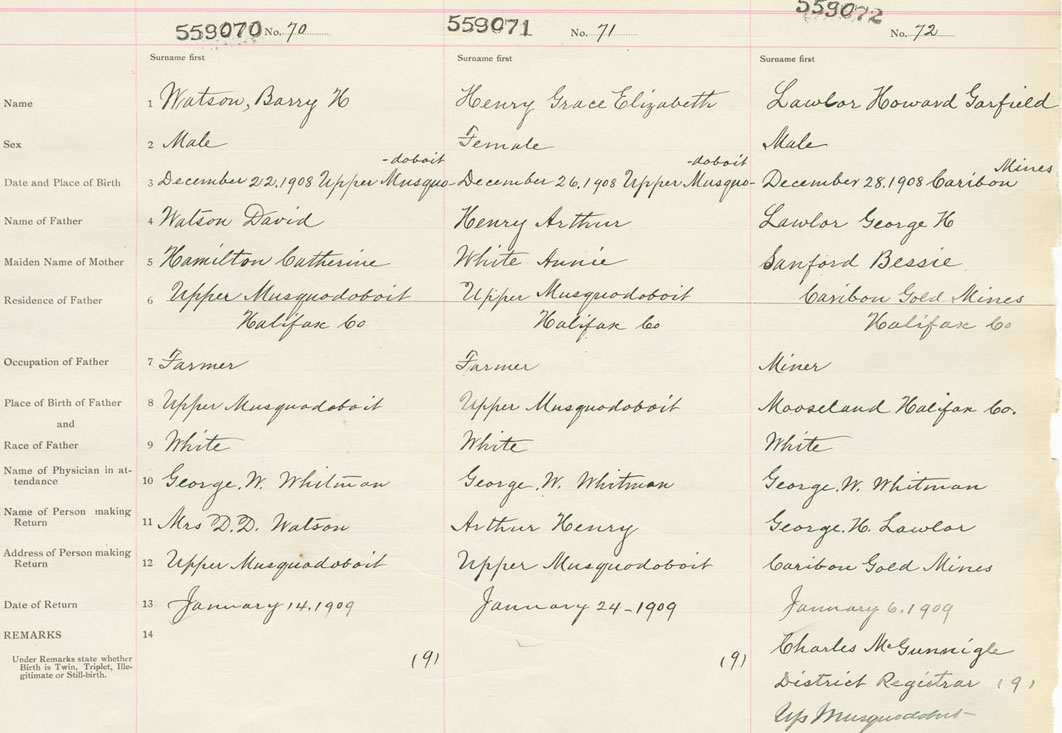 559070 No. 70 559071 No. 71 559072 No. 72
Surname first Surname first Surname first
Name 1 Watson, Barry H Henry Grace Elizabeth Lawlor Howard Garfield
Sex 2 Male Female Male
-doboit -doboit Mines
Date and Place of Birth 3 December 22, 1908 Upper Musquo- December 26, 1908 Upper Musquo- December 28, 1908 Caribou
Name of Father 4 Watson David Henry Arthur Lawlor George H
Maiden Name of Mother 5 Hamilton Catherine White Annie Sanford Bessie
Residence of Father 6 Upper Musquodoboit Upper Musquodoboit Caribou Gold Mines
Halifax Co Halifax Co Halifax Co
Occupation of Father 7 Farmer Farmer Miner
Place of Birth of Father 8 Upper Musquodoboit Upper Musquodoboit Mooseland Halifax Co.
and
Race of Father 9 White White White
Name of Physician in at-
tendance 10 George. W. Whitman George. W. Whitman George. W. Whitman
Name of Person making
Return 11 Mrs D. D. Watson Arthur Henry George. H. Lawlor
Address of Person making
Return 12 Upper Musquodoboit Upper Musquodoboit Caribou Gold Mines
Date of Return 13 January 14, 1909 January 24-1909 January 6, 1909
REMARKS 14
Charles McGunnigle
Under Remarks state whether
Birth is Twin, Triplet, Ille-
gitimate or Still-birth.
(9) (9) District Registrar (9)
Up Musquodoboit